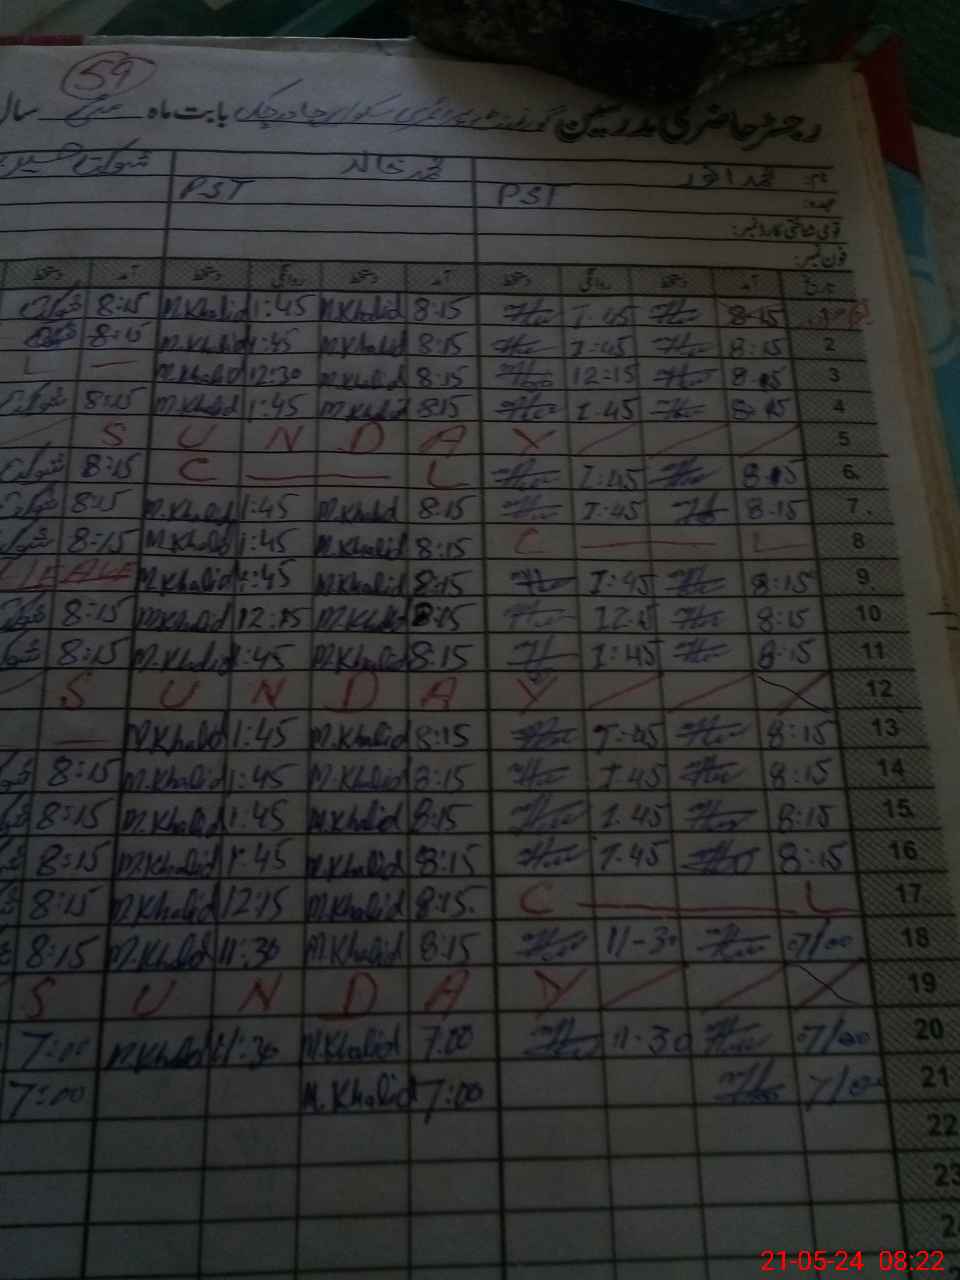 59
رجسٹر حاضری مدرسین گورنمنٹ پرائمری سکول بابت ماہ مئی سال
نام: محمد انور محمد خالد شوکت حسین
عہدہ: PST PST
قومی شناختی کارڈ نمبر:
فون نمبر:
تاریخ آمد دستخط روانگی دستخط آمد دستخط روانگی دستخط آمد دستخط
شوکت 8:15 M.Khalid 1:45 M.Khalid 8:15 1:45 8:15 1
8:15 M.Khalid 1:45 M.Khalid 8:15 1:45 8:15 2
L — M.Khalid 12:30 M.Khalid 8:15 12:15 8:15 3
شوکت 8:15 M.Khalid 1:45 M.Khalid 8:15 1:45 8:15 4
S U N D A Y 5
شوکت 8:15 C — L 1:45 8:15 6
شوکت 8:15 M.Khalid 1:45 M.Khalid 8:15 1:45 8:15 7
شوکت 8:15 M.Khalid 1:45 M.Khalid 8:15 C — L 8
M.Khalid 1:45 M.Khalid 8:15 1:45 8:15 9
شوکت 8:15 M.Khalid 12:15 M.Khalid 8:15 12:15 8:15 10
شوکت 8:15 M.Khalid 1:45 M.Khalid 8:15 1:45 8:15 11
S U N D A Y 12
— M.Khalid 1:45 M.Khalid 8:15 1:45 8:15 13
8:15 M.Khalid 1:45 M.Khalid 8:15 1:45 8:15 14
8:15 M.Khalid 1:45 M.Khalid 8:15 1:45 8:15 15
8:15 M.Khalid 1:45 M.Khalid 8:15 1:45 8:15 16
8:15 M.Khalid 12:15 M.Khalid 8:15 C — L 17
8:15 M.Khalid 11:30 M.Khalid 8:15 11-30 7/00 18
S U N D A Y 19
7:00 M.Khalid 11:30 M.Khalid 7:00 11-30 7/00 20
7:00 M.Khalid 7:00 7/00 21
22
23
24
21-05-24 08:22